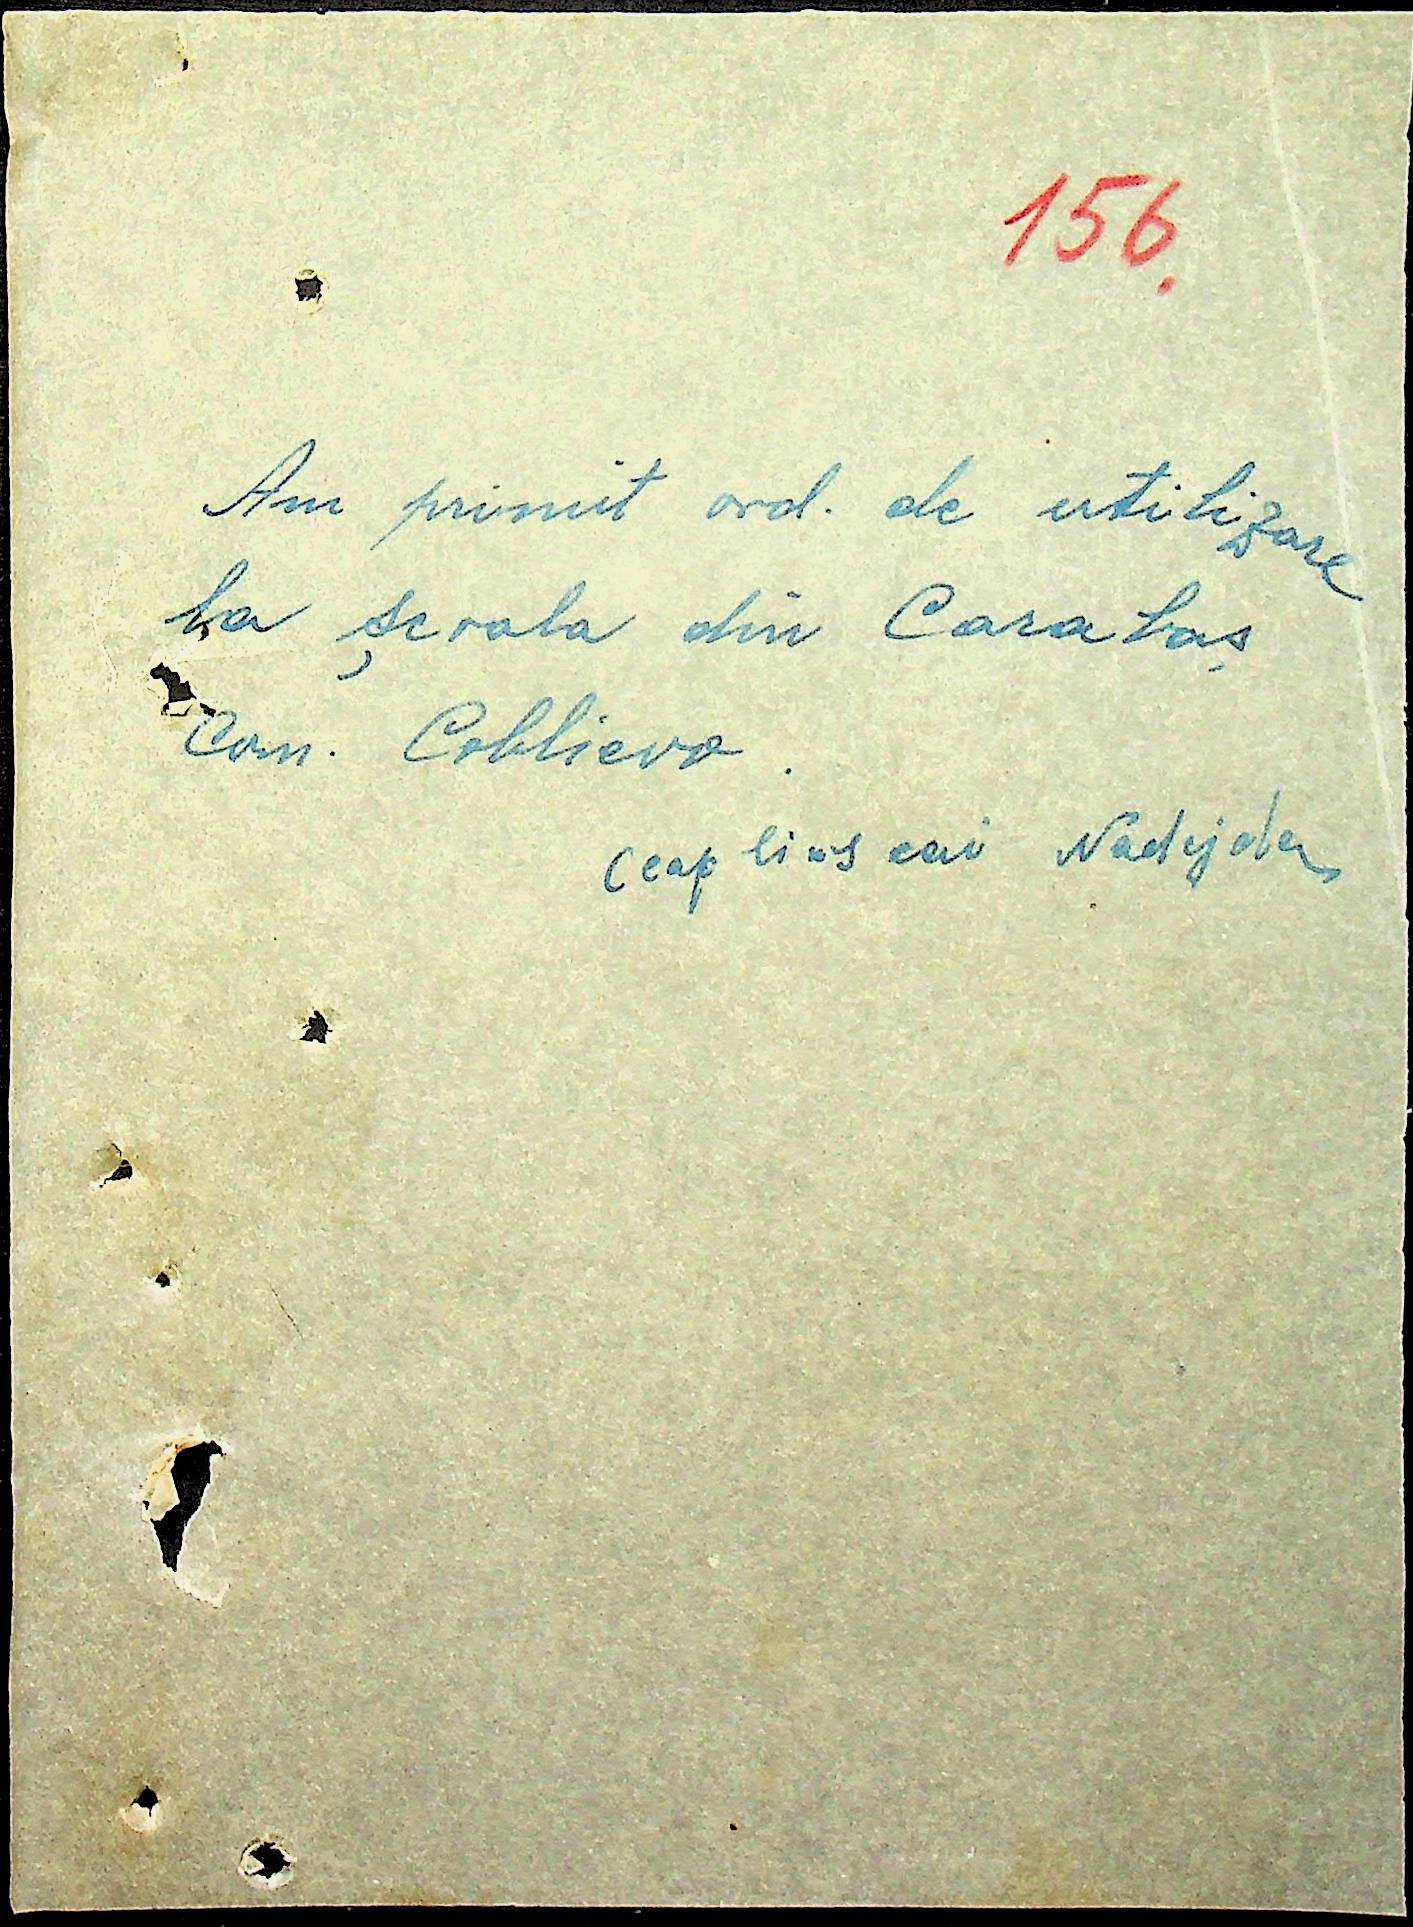 156.
Am primit ord. de utilizare
la școala din Carabaș
Com. Coblievo.
Ceaplinscai Nadejda